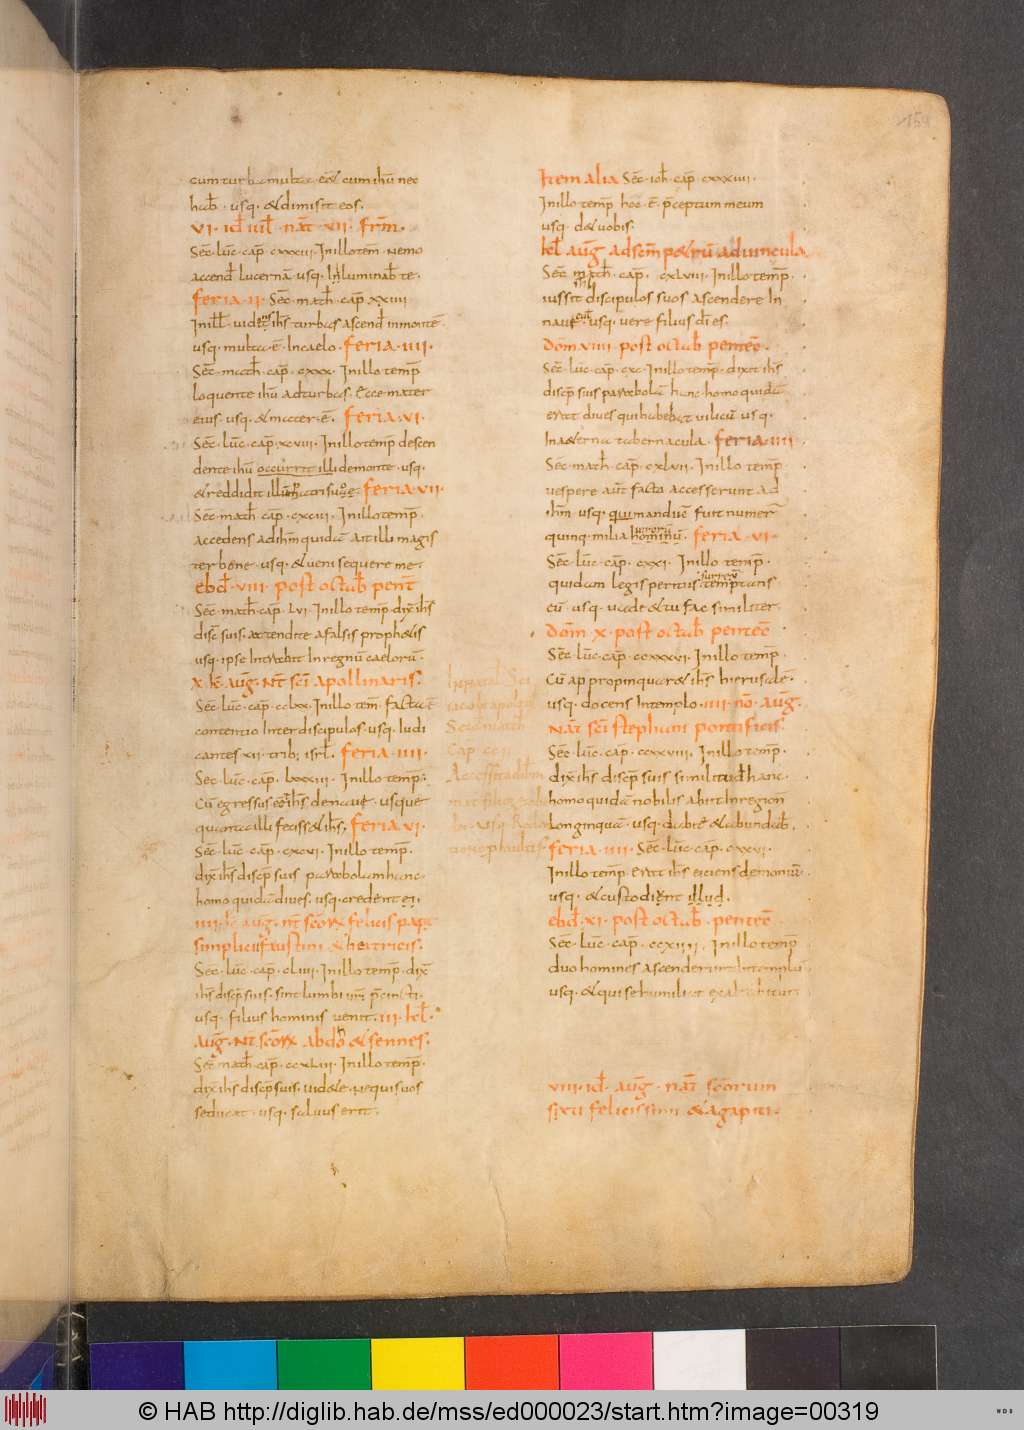 cum turba multa · eēt cum ihū nec
hab̄ · usq · & dimisit eos.
VI · id iul̄ · nāt · VII · frm̄ ·
Sēc · luc̄ · cap̄ · cxxxiii · In illo tem̄ · Nemo
accend̄ lucernā usq · Inluminab̄ te ·
feria · II · Sēc · math̄ · cap̄ xxiiii
In ill̄ · uidens ihs̄ turbas ascend̄ in montē
usq · multa · ē · In caelo · feria · IIII ·
Sēc · math̄ · cap̄ · cxxx · In illo temp̄
loquente ihū ad turbas · Ecce mater
eius · usq · & mater · ē · feria · VI ·
Sēc · luc̄ · cap̄ · xcviii · In illo temp̄ descen
dente ihū occurrit illi demonte · usq ·
& reddidit illum patri suo · feria · VII ·
Sēc · math̄ · cap̄ · cxciii · In illo temp̄ ·
accedens ad ihm̄ quidā · Ait illi magis
ter bone · usq · & ueni sequere me ·
ebd̄ · VIII · post octab̄ pent̄
Sēc · math̄ · cap̄ · LVI · In illo temp̄ · dix̄ ihs̄
disc̄ suis · attendite a falsis prophetis
usq · ipse Intrabit In regnū caelorū ·
X · kl̄ · auḡ · Nt̄ sc̄i apollinaris ·
Sēc · luc̄ · cap̄ · cclxx · In illo tem̄ · facta ē
contentio Inter discipulos · usq · Iudi
cantes · xii · trib; isrl̄ · feria · IIII ·
Sēc · luc̄ · cap̄ · lxxxiii · In illo temp̄ ·
Cū egressus eēt ihs̄ de naue · usque
quanta illi fecisset ihs̄ · feria · VI ·
Sēc · luc̄ · cap̄ · cxcvi · In illo temp̄ ·
dix̄ ihs̄ discp̄ suis parabolam hanc ·
homo quidā diues · usq · credent ei ·
IIII · kl̄ auḡ · nt̄ scōrx felicis papę
simplicii faustini & beatricis ·
Sēc · luc̄ · cap̄ · cliiii · In illo temp̄ · dix̄
ihs̄ discp̄ suis · sint lumbi urī p̄cincti ·
usq · filius hominis uenit · III · kl̄ ·
auḡ · Nt̄ scōrx abdo & sennes ·
Sēc math̄ · cap̄ · ccxliii · In illo temp̄ ·
dix̄ ihs̄ discp̄ suis · uidete · ne quis uos
seducat · usq · saluus erit ·
Sci
iacobi apostoli
Sēc math̄
Cap̄ · cci
Accessit ad ihm̄
mat̄ filiorū zebe
Item alia Sēc · ioh̄ · cap̄ · cxxxiiii ·
In illo temp̄ hoc · ē · p̄ceptum meum
usq · det uobis ·
kl̄ auḡ ad scm̄ petrū ad uincula
Sēc math̄ · cap̄ · cxlviii · In illo temp̄ ·
iussit ihs̄ discipulos suos ascendere In
naue · usq · uere filius dī es ·
Dom̄ VIIII post octab̄ pentec̄ ·
Sēc · luc̄ · cap̄ · cxc · In illo temp̄ · dixit ihs̄
discp̄ suis parabolā hanc · homo quidā
erat diues qui habebat uilicū usq ·
In aeterna tabernacula · feria · IIII
Sēc · math̄ · cap̄ · cxlvii · In illo temp̄
uespere aut̄ facto accesserunt ad
ihm̄ · usq · qui manducē fuit numer̄
quinq · milia hominū · uirorū feria · VI ·
Sēc · luc̄ · cap̄ · cxxi · In illo temp̄ ·
quidam legis peritus surrex̄ temptans
eū · usq · uade & tu fac similiter ·
Dom̄ · X · post octab̄ pentec̄ ·
Sēc · luc̄ · cap̄ · ccxxxvi · In illo temp̄ ·
Cū appropinquaret ihs̄ hierusalē ·
usq · docens In templo · IIII · no · auḡ ·
Nat̄ sc̄i stephani pontificis
Sēc · luc̄ · cap̄ · ccxxviii · In illo temp̄ ·
dix̄ ihs̄ discp̄ suis similitud̄ hanc ·
homo quidā nobilis abiit In regionē
longinquā · usq · dabit̄ & abundab̄ ·
feria · IIII · Sēc · luc̄ · cap̄ · cxxvi ·
In illo temp̄ · erat ihs̄ eiciens demoniū
usq · & custodiunt illud ·
ebd̄ · XI · post octab̄ · pentec̄
Sēc · luc̄ · cap̄ · ccxiiii · In illo temp̄
duo homines ascenderunt In templū
usq · & qui se humiliat exaltabitur ·
VIII · id̄ · auḡ · nat̄ scōrum
sixti felicissimi & agapiti ·
© HAB http://diglib.hab.de/mss/ed000023/start.htm?image=00319